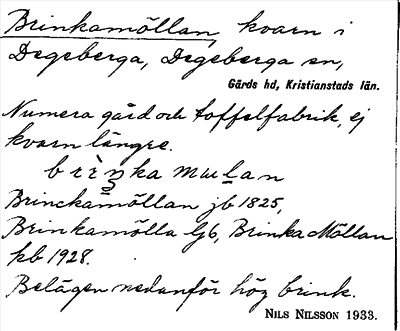 Brinkamöllan, kvarn i
Degeberga, Degeberga sn,
Gärds hd, Kristianstads län.
Numera gård och toffelfabrik, ej
kvarn längre.
Brinckamöllan jb 1825,
Brinkamölla Gjb, Brinka Möllan
kb 1928.
Belägen nedanför hög brink.
NILS NILSSON 1933.